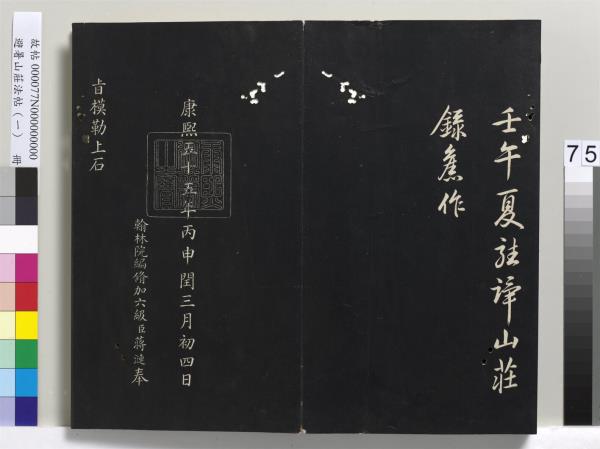 壬午夏駐蹕山莊
錄舊作
康熙五十五年丙申閏三月初四日
翰林院編脩加六級臣蔣漣奉
旨模勒上石
故帖 000077N000000000
避暑山莊法帖（一） 冊
75